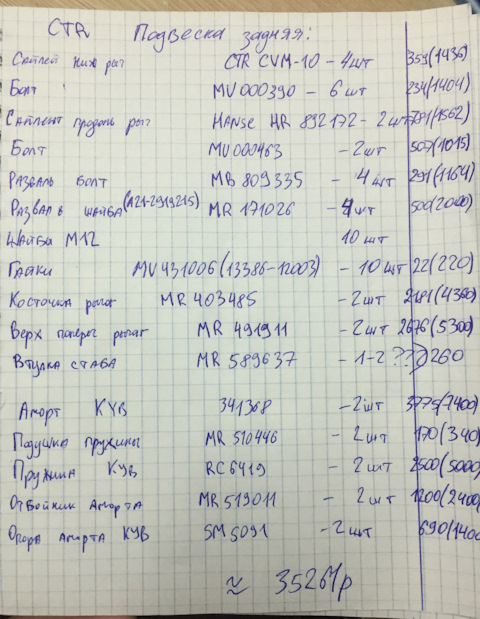 CTR Подвеска задняя:
Сатлент ниж рыг CTR CVM-10 - 4шт 359(1436)
Болт MV000390 - 6шт 234(1404)
Сатлент продоль рыг HANSE HR 892172 - 2шт 781(1562)
Болт MU000463 - 2шт 507(1015)
Разваль болт MB 809335 - 4шт 291(1164)
Разваль шайба (A21-2919215) MR 171026 - 4шт 500(2000)
Шайбы М12 10шт
Гайки MV431006 (13386-12003) - 10шт 22(220)
Косточка рычаг MR 403485 - 2шт 2181(4360)
Верх попереч рычаг MR 491911 - 2шт 2676(5300)
Втулка стаба MR 589637 - 1-2 ??? 260
Аморт KYB 341368 - 2шт 3775(7400)
Подушка пружины MR 510446 - 2шт 170(340)
Пружина KYB RC6419 - 2шт 2500(5000)
Отбойник аморта MR519011 - 2шт 1200(2400)
Опора аморта KYB SM5091 - 2шт 690(1400
≈ 35261р